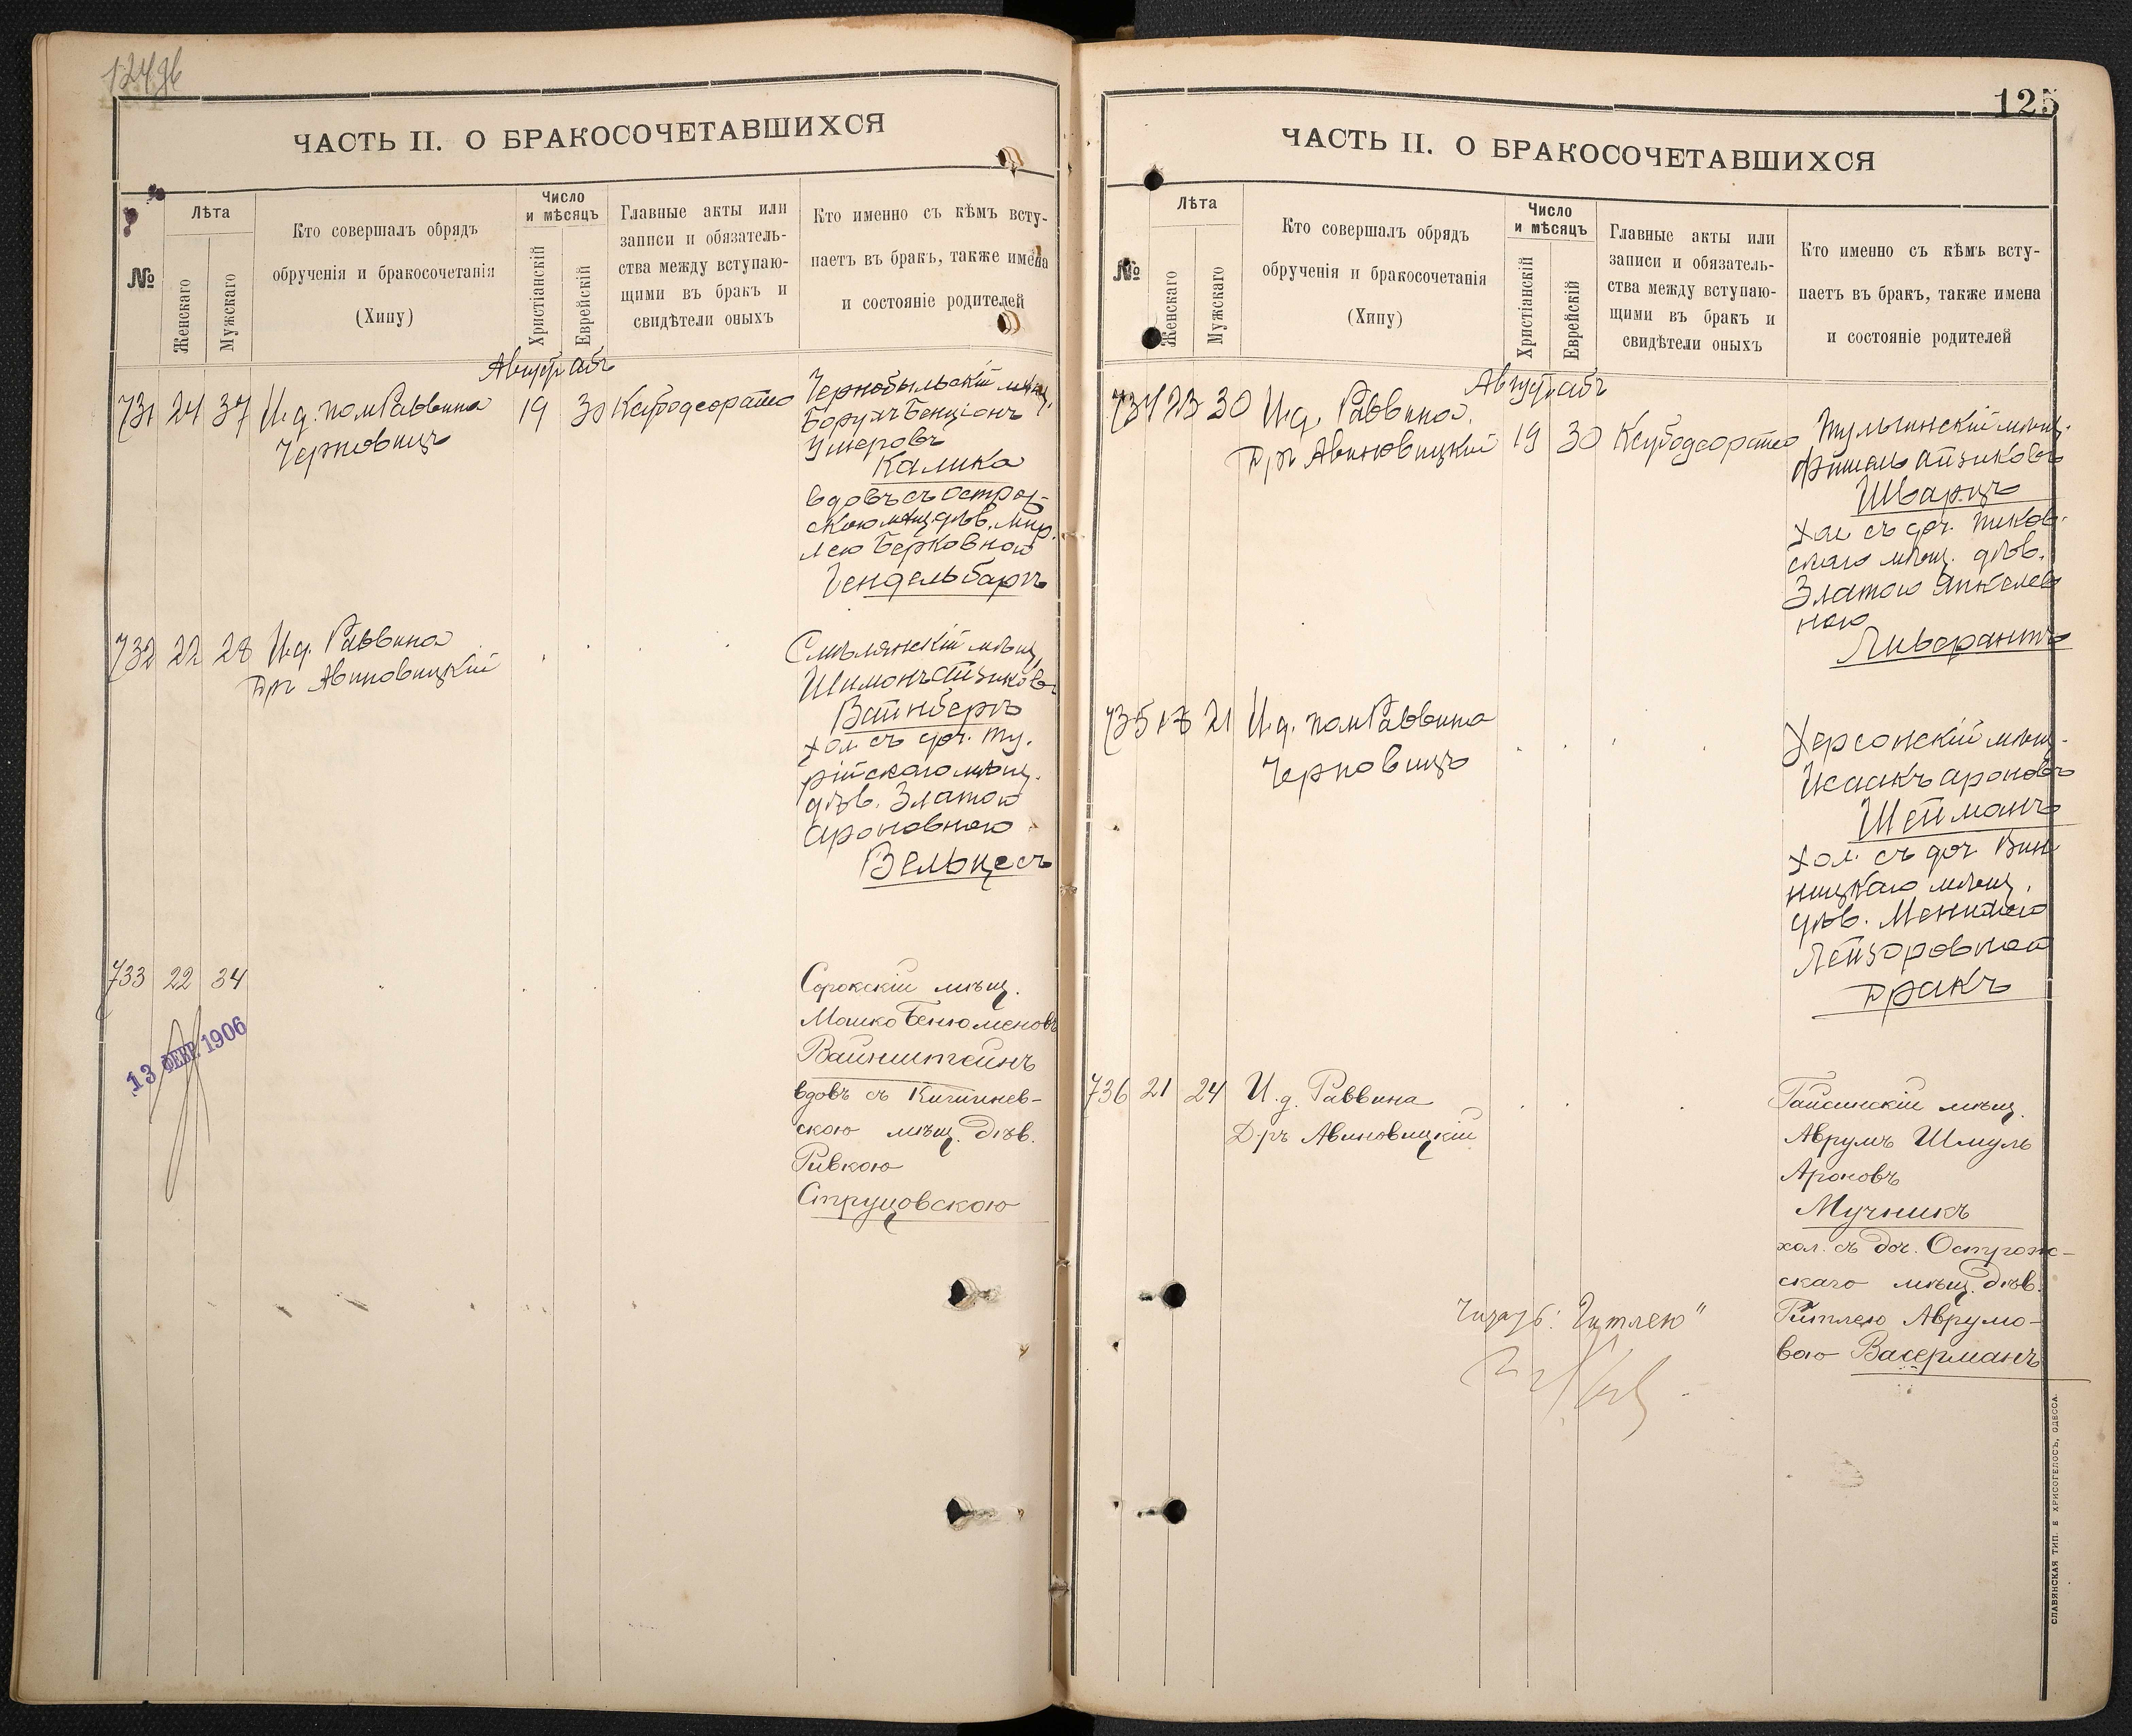 124 об
ЧАСТЬ II. О БРАКОСОЧЕТАВШИХСЯ
№
Лѣта
Женскаго
Мужскаго
Кто совершалъ обрядъ
обрученія и бракосочетанія
(Хипу)
Число
и мѣсяцъ
Христіанскій
Еврейскій
Главные акты или
записи и обязатель-
ства между вступаю-
щими въ бракъ и
свидѣтели оныхъ
Кто именно съ кѣмъ всту-
паетъ въ бракъ, также имена
и состояніе родителей
Август Абъ
731 24 37 И.д. пом Раввина
Черновицъ
19 30
Чернобыльскій мѣщ.
Борухъ Бенціонъ
Умеровъ
Калика
вдовъ съ Острож-
скою мѣщ. дѣв. Мир.
лею Берковной
Гендельбаръ
732 22 28 И.д. Раввина
Д-ръ Авиновицкій
Смѣлянскій мѣщ.
Шимонъ Айзиковъ
Вайнберъ
хол. съ доч. Ту-
рійскаго мѣщ.
дѣв. Златою
Ароновною
Вельцесъ
733 22 34
Сорокскій мѣщ.
Мошко Бенюменовъ
Вайнштейнъ
вдовъ съ Кишинев-
скою мѣщ. дѣв.
Ривкою
Струцовскою
13 ФЕВР. 1906
125
ЧАСТЬ II. О БРАКОСОЧЕТАВШИХСЯ
№
Лѣта
Женскаго
Мужскаго
Кто совершалъ обрядъ
обрученія и бракосочетанія
(Хипу)
Число
и мѣсяцъ
Христіанскій
Еврейскій
Главные акты или
записи и обязатель-
ства между вступаю-
щими въ бракъ и
свидѣтели оныхъ
Кто именно съ кѣмъ всту-
паетъ въ бракъ, также имена
и состояніе родителей
Август Абъ
734 23 30 И.д. Раввина
Д-ръ Авиновицкій
19 30
Тульчинскій мѣщ.
Фишель Айзиковъ
Шварцъ
хол съ доч. Тиков-
скаго мѣщ. дѣв.
Златою Янкелев
ною
Ливерантъ
735 18 21 И.д. пом Раввина
Черновицъ
Херсонскій мѣщ.
Исаакъ Ароновъ
Шейманъ
хол. съ доч Вин
ницкаго мѣщ.
дѣв.
Лейзоровной
Дракъ
736 21 24 И.д. Раввина
Д-ръ Авиновицкій
Гайсинскій мѣщ.
Аврумъ Шмуль
Ароновъ
Мучникъ
хол. съ доч. Острож-
скаго мѣщ. дѣв.
Гитлею Аврумо-
вою Васерманъ
"Гитлею"
СЛАВЯНСКАЯ ТИП. Е ХРИСОГЕЛОСЪ, ОДЕССА.